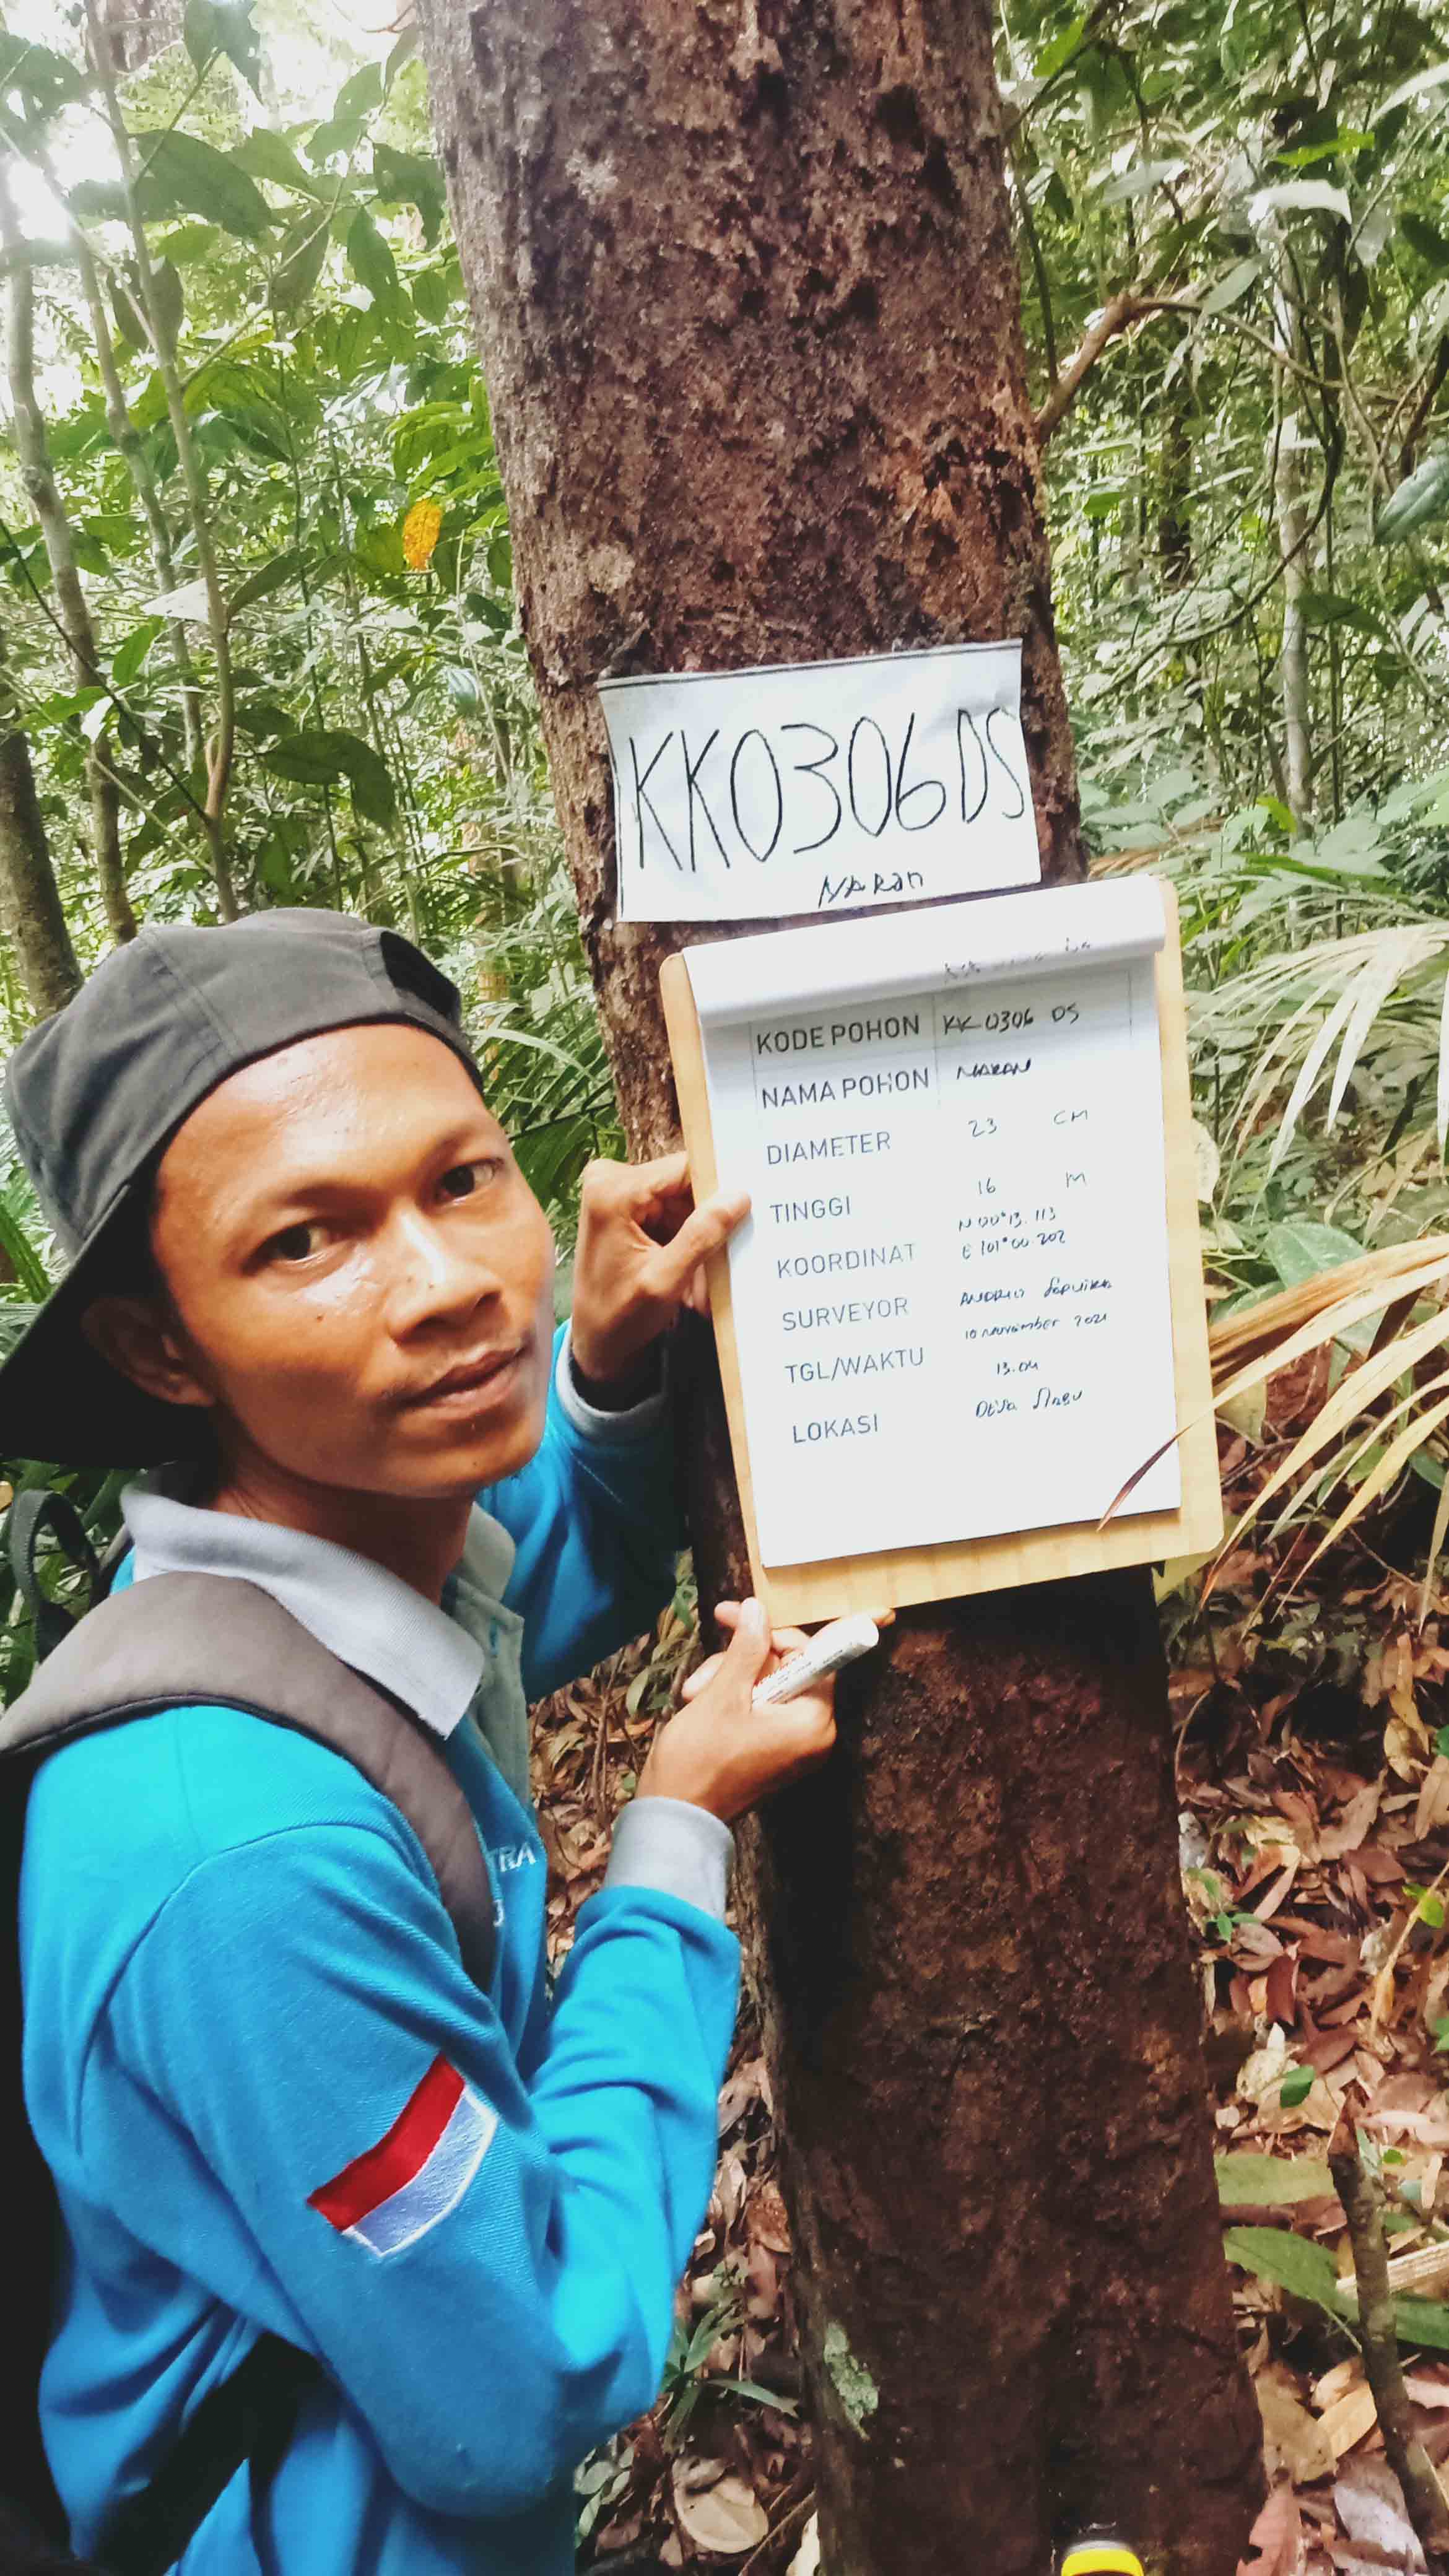 KK0306DS
NARAN
KODE POHON KK0306 DS
NAMA POHON NARAN
DIAMETER 23 CM
TINGGI 16 M
KOORDINAT N 00°13.113
E 101°00.202
SURVEYOR ANDRIO SAPUTRA
TGL/WAKTU 10 November 2021
13.04
LOKASI Desa
TRA